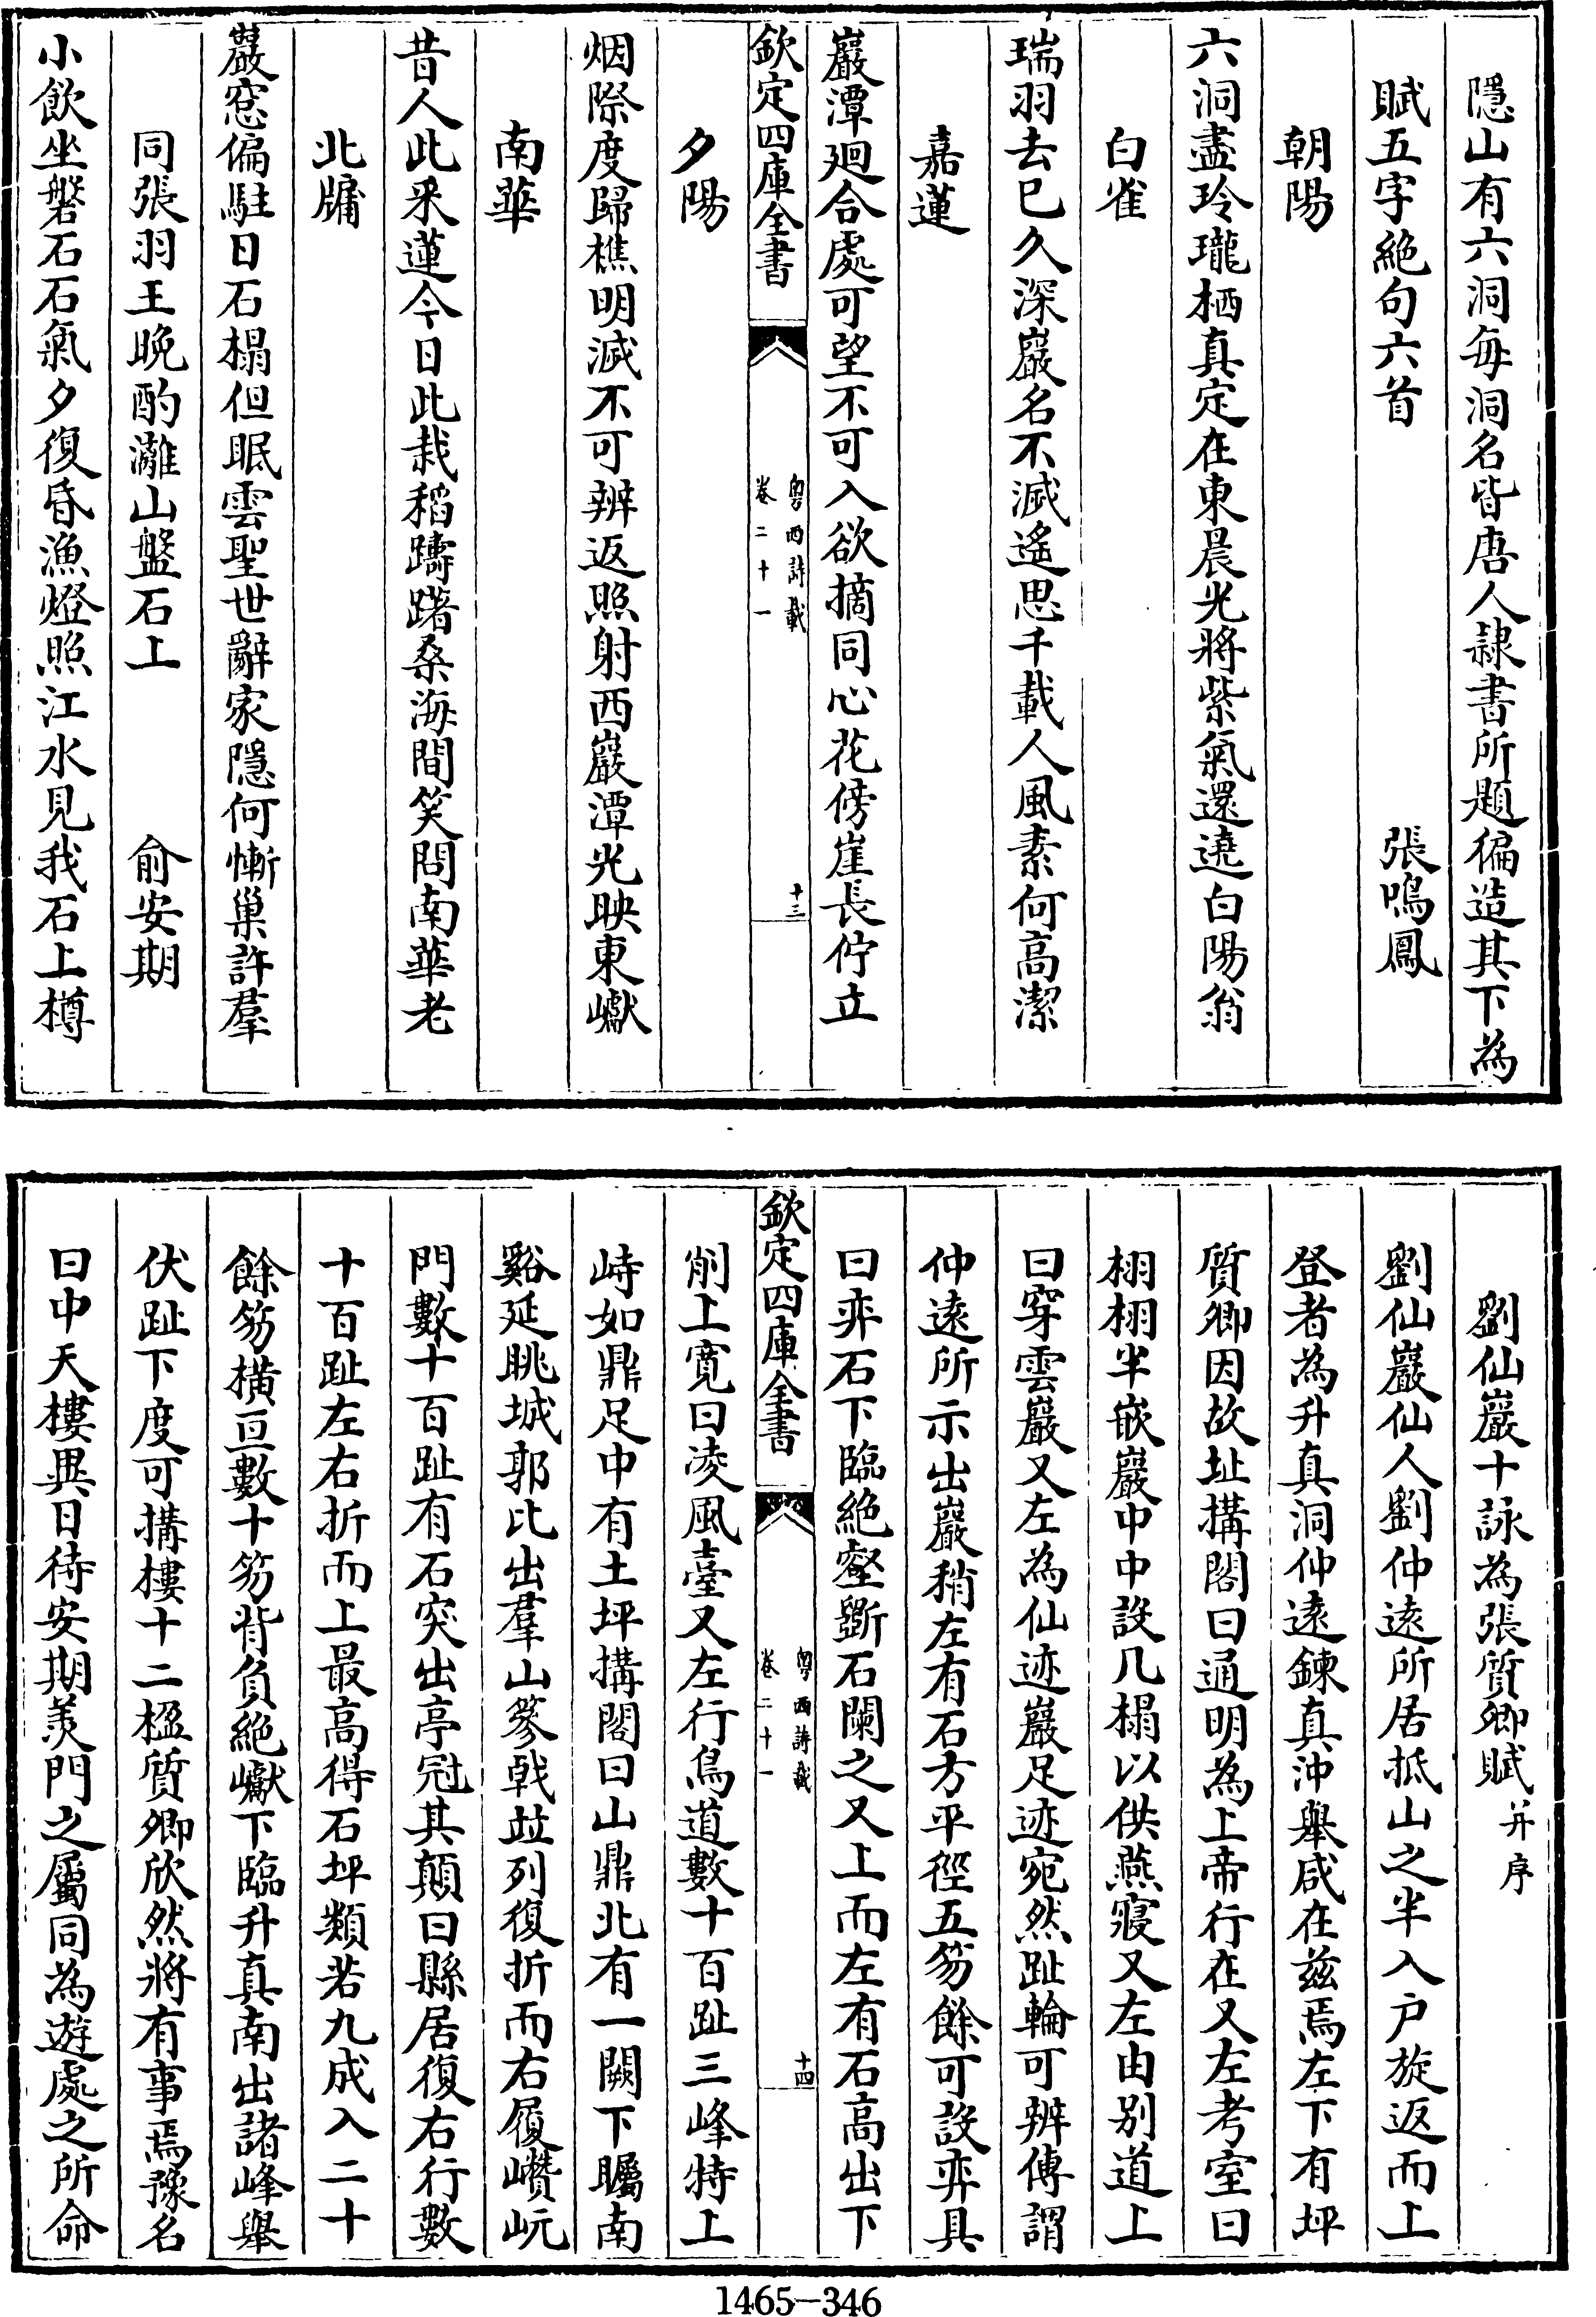 隱山有六洞每洞名皆唐人隷書所題徧造其下為
賦五字絶句六首　張鳴鳳
朝陽
六洞盡玲瓏栖真定在東晨光將紫氣還遶白陽翁
白雀
瑞羽去已久深巖名不滅遙思千載人風素何高潔
嘉蓮
巖潭廻合處可望不可入欲摘同心花傍崖長佇立
欽定四庫全書　粤西詩載　卷二十一　十三
夕陽
烟際度歸樵明滅不可辨返照射西巖潭光映東巘
南華
昔人此采蓮今日此栽稻躊躇桑海間笑問南華老
北牖
巖窓偏駐日石榻但眠雲聖世辭家隱何慚巢許羣
同張羽王晚酌灕山盤石上　俞安期
小飲坐磐石石氣夕復昏漁燈照江水見我石上樽
劉仙巖十詠為張質卿賦并序
劉仙巖仙人劉仲遠所居抵山之半入户旋返而上
登者為升真洞仲遠鍊真沖舉咸在兹焉左下有坪
質卿因故址搆閣曰通明為上帝行在又左考室曰
栩栩半嵌巖中中設几榻以供燕寢又左由别道上
曰穿雲巖又左為仙迹巖足迹宛然趾輪可辨傳謂
仲遠所示出巖稍左有石方平徑五笏餘可設弈具
曰弈石下臨絶壑斵石闌之又上而左有石高出下
欽定四庫全書　粤西詩載　卷二十一　十四
削上寛曰凌風臺又左行鳥道數十百趾三峰特上
峙如鼎足中有土坪搆閣曰山鼎北有一闕下矚南
谿延眺城郭比出羣山篸戟竝列復折而右履巑岏
門數十百趾有石突出亭冠其顛曰縣居復右行數
十百趾左右折而上最高得石坪類若九成入二十
餘笏横亘數十笏背負絶巘下臨升真南出諸峰舉
伏趾下度可搆樓十二楹質卿欣然將有事焉豫名
曰中天樓異日待安期羨門之屬同為遊處之所命
1465—346